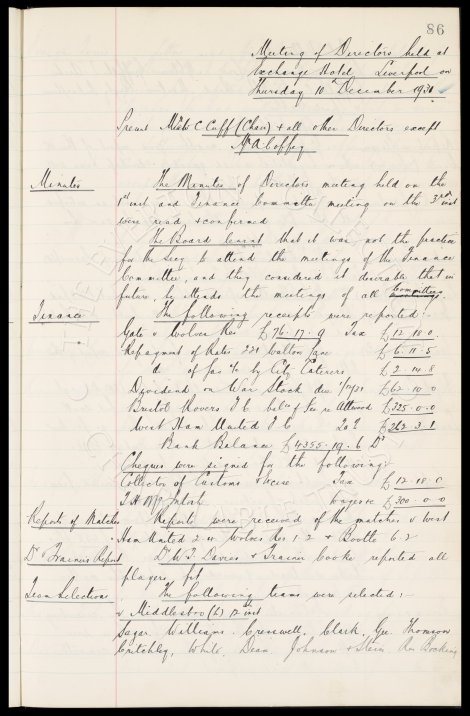 86
Meeting of Directors held at
Exchange Hotel, Liverpool on
Thursday 10th December 1931.
Present W C Cuff (Chair) & all other Directors except
Mr A Coffey
Minutes
The Minutes of Directors meeting held on the
1st inst and Finance Committee meeting on the 3rd inst
were read & confirmed
The Board learnt that it was not the practice
for the Secy to attend the meetings of the Finance
Committee, and they considered it desirable that in
future, he attends the meetings of all Committees
Finance
The following receipts were reported:-
Gate v Wolves Res £76. 17. 9 Tax £12. 18. 0
Repayment of Rates 221 Walton Lane £6. 11. 5
do of Gas a/c by City Caterers £2. 14. 8
Dividend on War Stock due 1/12/31 £62. 10. 0
Bristol Rovers F C balce of fee re Attwood £325. 0. 0
West Ham United F C £262. 3. 1
Bank Balance £4355. 19. 6 Dr
Cheques were signed for the following:-
Collector of Customs & Excise Tax £12. 18. 0
T. H. McIntosh Wages £300. 0. 0
Reports of Matches
Reports were received of the matches v West
Ham United 2.4 Wolves Res 1.2 & Bootle 6.2
Dr & Trainers Report
Dr W. T. Davies & Trainer Cooke reported all
players fit
Team Selections
The following teams were selected:-
v Middlesbro (L) 12th inst
Sagar, Williams, Cresswell, Clark, Gee, Thomson
Critchley, White, Dean, Johnson & Stein. Res Bocking